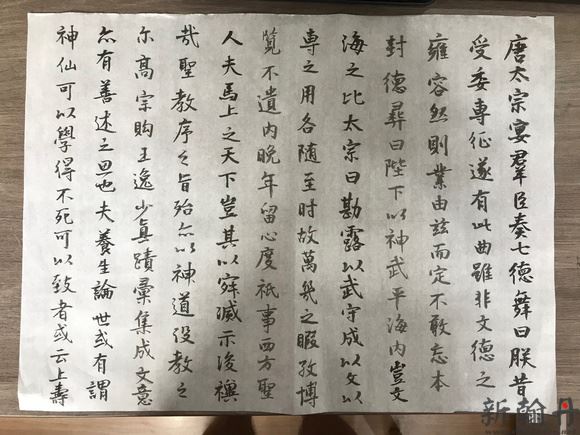 唐太宗宴羣臣奏七德舞曰朕昔
受委專征遂有此曲雖非文德之
雍容然則業由兹而定不敢忘本
封德彝曰陛下以神武平海内豈文
海之比太宗曰勘露以武守成以文以
專之用各随至时故萬幾之暇孜博
覧不遺内晚年留心度祇事西方聖
人夫馬上之天下豈其以寂滅示後禩
哉聖教序之旨殆亦以神道役教之
尔高宗購王逸少真蹟彙集成文意
亦有善述之思也夫養生論世或有謂
神仙可以學得不死可以致者或云上壽
新翰丹